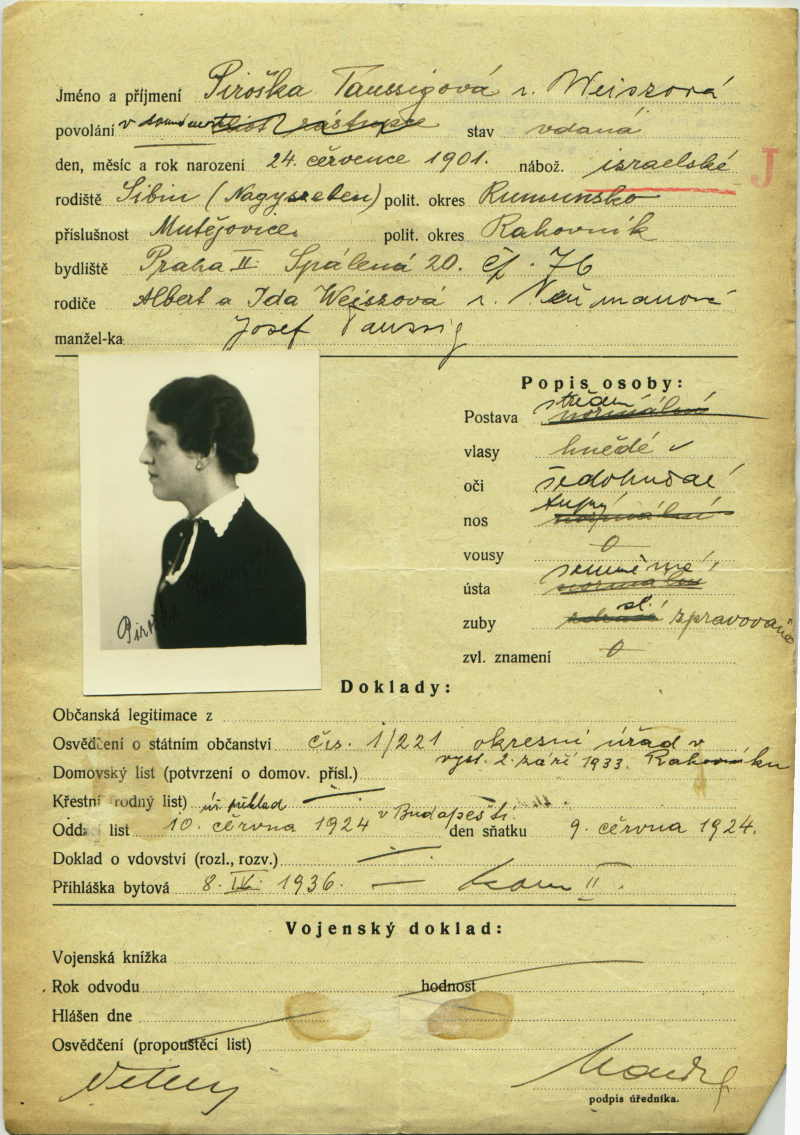 Jméno a příjmení Piroška Taussigová r. Weiszová
povolání v domácn. zást zástupce stav vdaná
den, měsíc a rok narození 24. července 1901. nábož. israelské J
rodiště Sibin (Nagyszeben) polit. okres Rumunsko
příslušnost Mutějovice. polit. okres Rakovník
bydliště Praha II. Spálená 20. čp. 76
rodiče Albert a Ida Weiszová r. Neumanová
manžel-ka Josef Taussig
Popis osoby:
Postava střední normální
vlasy hnědé
oči šedohnědé
nos tupý normální
vousy 0
ústa souměrné normální
zuby sl. zdravé zpravované
zvl. znamení 0
Piroška
Doklady:
Občanská legitimace z
Osvědčení o státním občanství čís. 1/221 okresní úřad v
vyst. 2. září 1933. Rakovníku
Domovský list (potvrzení o domov. přísl.)
Křestní (rodný list) úř. překlad —
Odd. list 10. června 1924 v Budapešti. den sňatku 9. června 1924.
Doklad o vdovství (rozl., rozv.) —
Přihláška bytová 8. IV. 1936. — kom II.
Vojenský doklad:
Vojenská knížka
Rok odvodu hodnost
Hlášen dne
Osvědčení (propouštěcí list)
podpis úředníka.